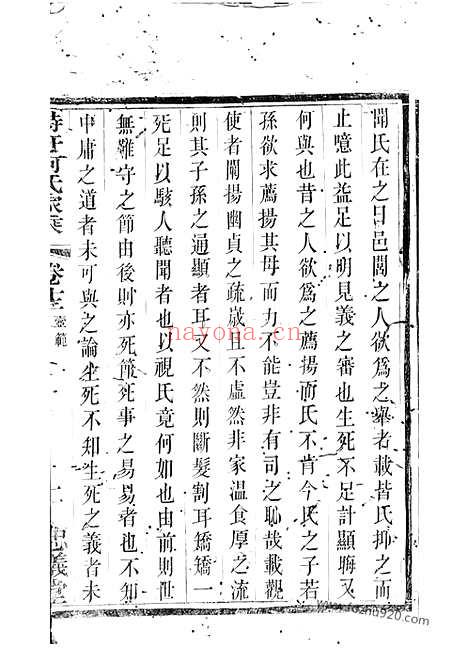 聞氏在之日邑閭之人欲為之舉者載皆氏抑之而
止噫此益足以明見義之審也生死不足計顯晦又
何與也昔之人欲為之薦揚而氏不肯今氏之子若
孫欲求薦揚其母而力不能豈非有司之恥哉載觀
使者闡揚幽貞之疏歲且不虛然非家溫食厚之流
則其子孫之通顯者耳又不然則斷髮割耳矯矯一
死足以駭人聽聞者也以視氏竟何如也由前則世
無難守之節由後則亦死節死事之易易者也不由
中庸之道者未可與之論生死不知生死之義者未
何氏家乘
卷十三
壼範
忠義堂
nayona.cn
www.jiufu920.com